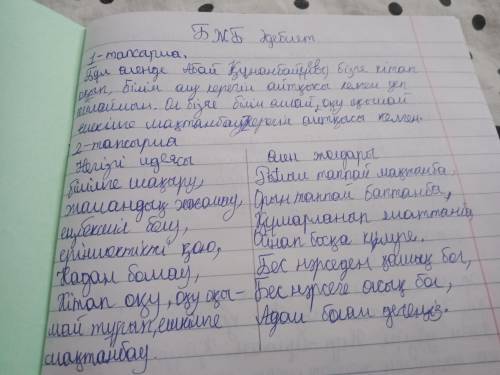 БЖБ Әдебиет
1-тапсырма.
Бұл өлеңде Абай Құнанбайұлы бізге кітап
оқып, білім алу керегін айтқысы келген деп
ойлаймын. Ол бізге білім алмай, оқу оқымай
ешкімге мақтанбау керегін айтқысы келген.
2-тапсырма
Негізгі идеясы
білімге шақыру,
жамандық жасамау,
еңбекшіл болу,
еріншектікті қою,
Надан болмау,
Кітап оқу, оқу оқы-
май тұрып, ешкімге
мақтанбау.
өлең жолдары
Ғылым таппай мақтанба,
Орын таппай баптанба,
Құмарланып шаттанба
Ойнап босқа күлуге.
Бес нәрседен қашық бол,
Бес нәрсеге асық бол,
Адам болам деңенңіз.